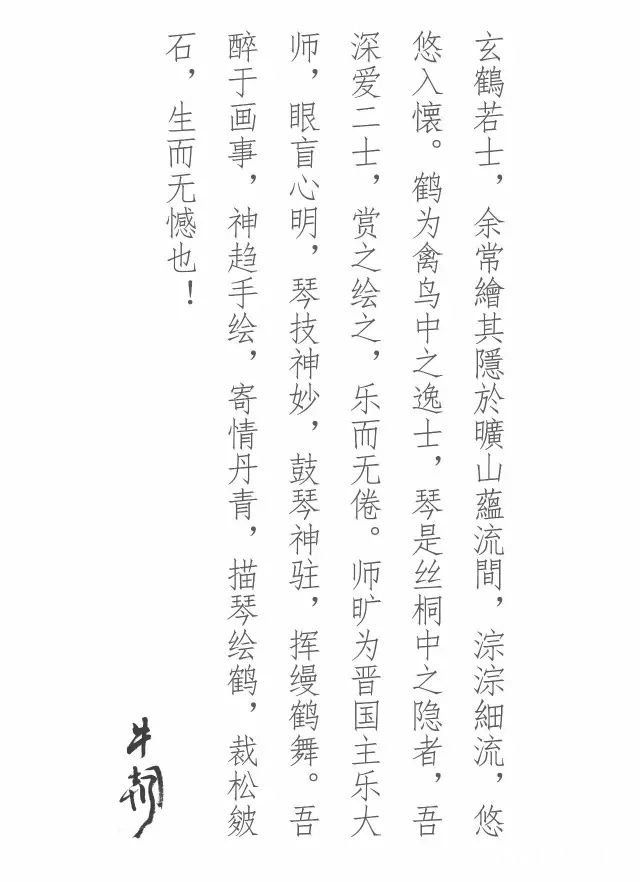 玄鶴若士，余常繪其隱於曠山蘊流間，淙淙細流，悠
悠入懷。鹤为禽鸟中之逸士，琴是丝桐中之隐者，吾
深爱二士，赏之绘之，乐而无倦。师旷为晋国主乐大
师，眼盲心明，琴技神妙，鼓琴神驻，挥缦鹤舞。吾
醉于画事，神趋手绘，寄情丹青，描琴绘鹤，裁松皴
石，生而无憾也！